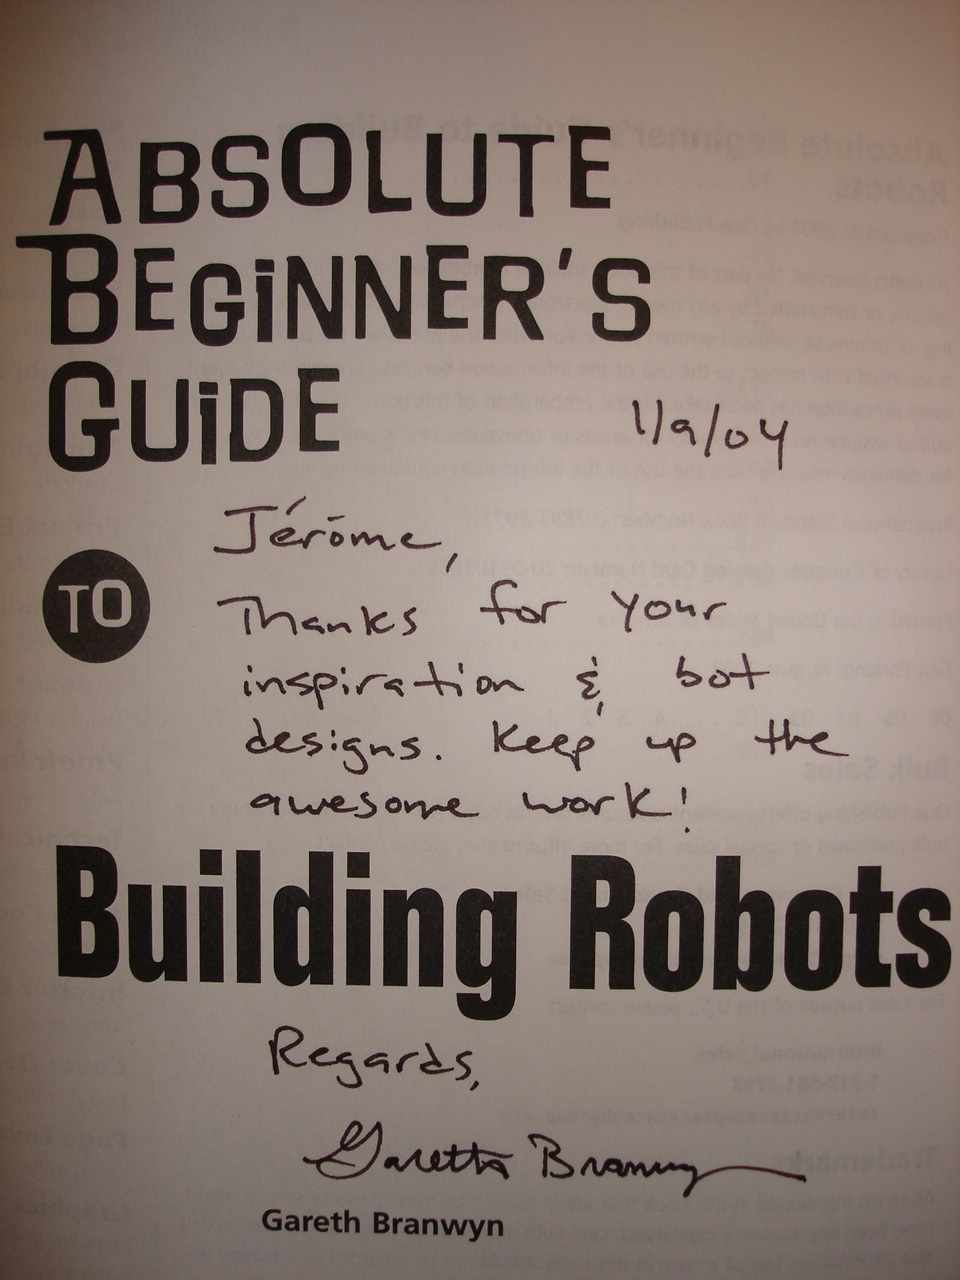 ABSOLUTE
BEGINNER'S
GUIDE
1/9/04
Jérōme,
TO
Thanks for your
inspiration & bot
designs. Keep up the
awesome work!
Building Robots
Regards,
Gareth Branwyn
Gareth Branwyn